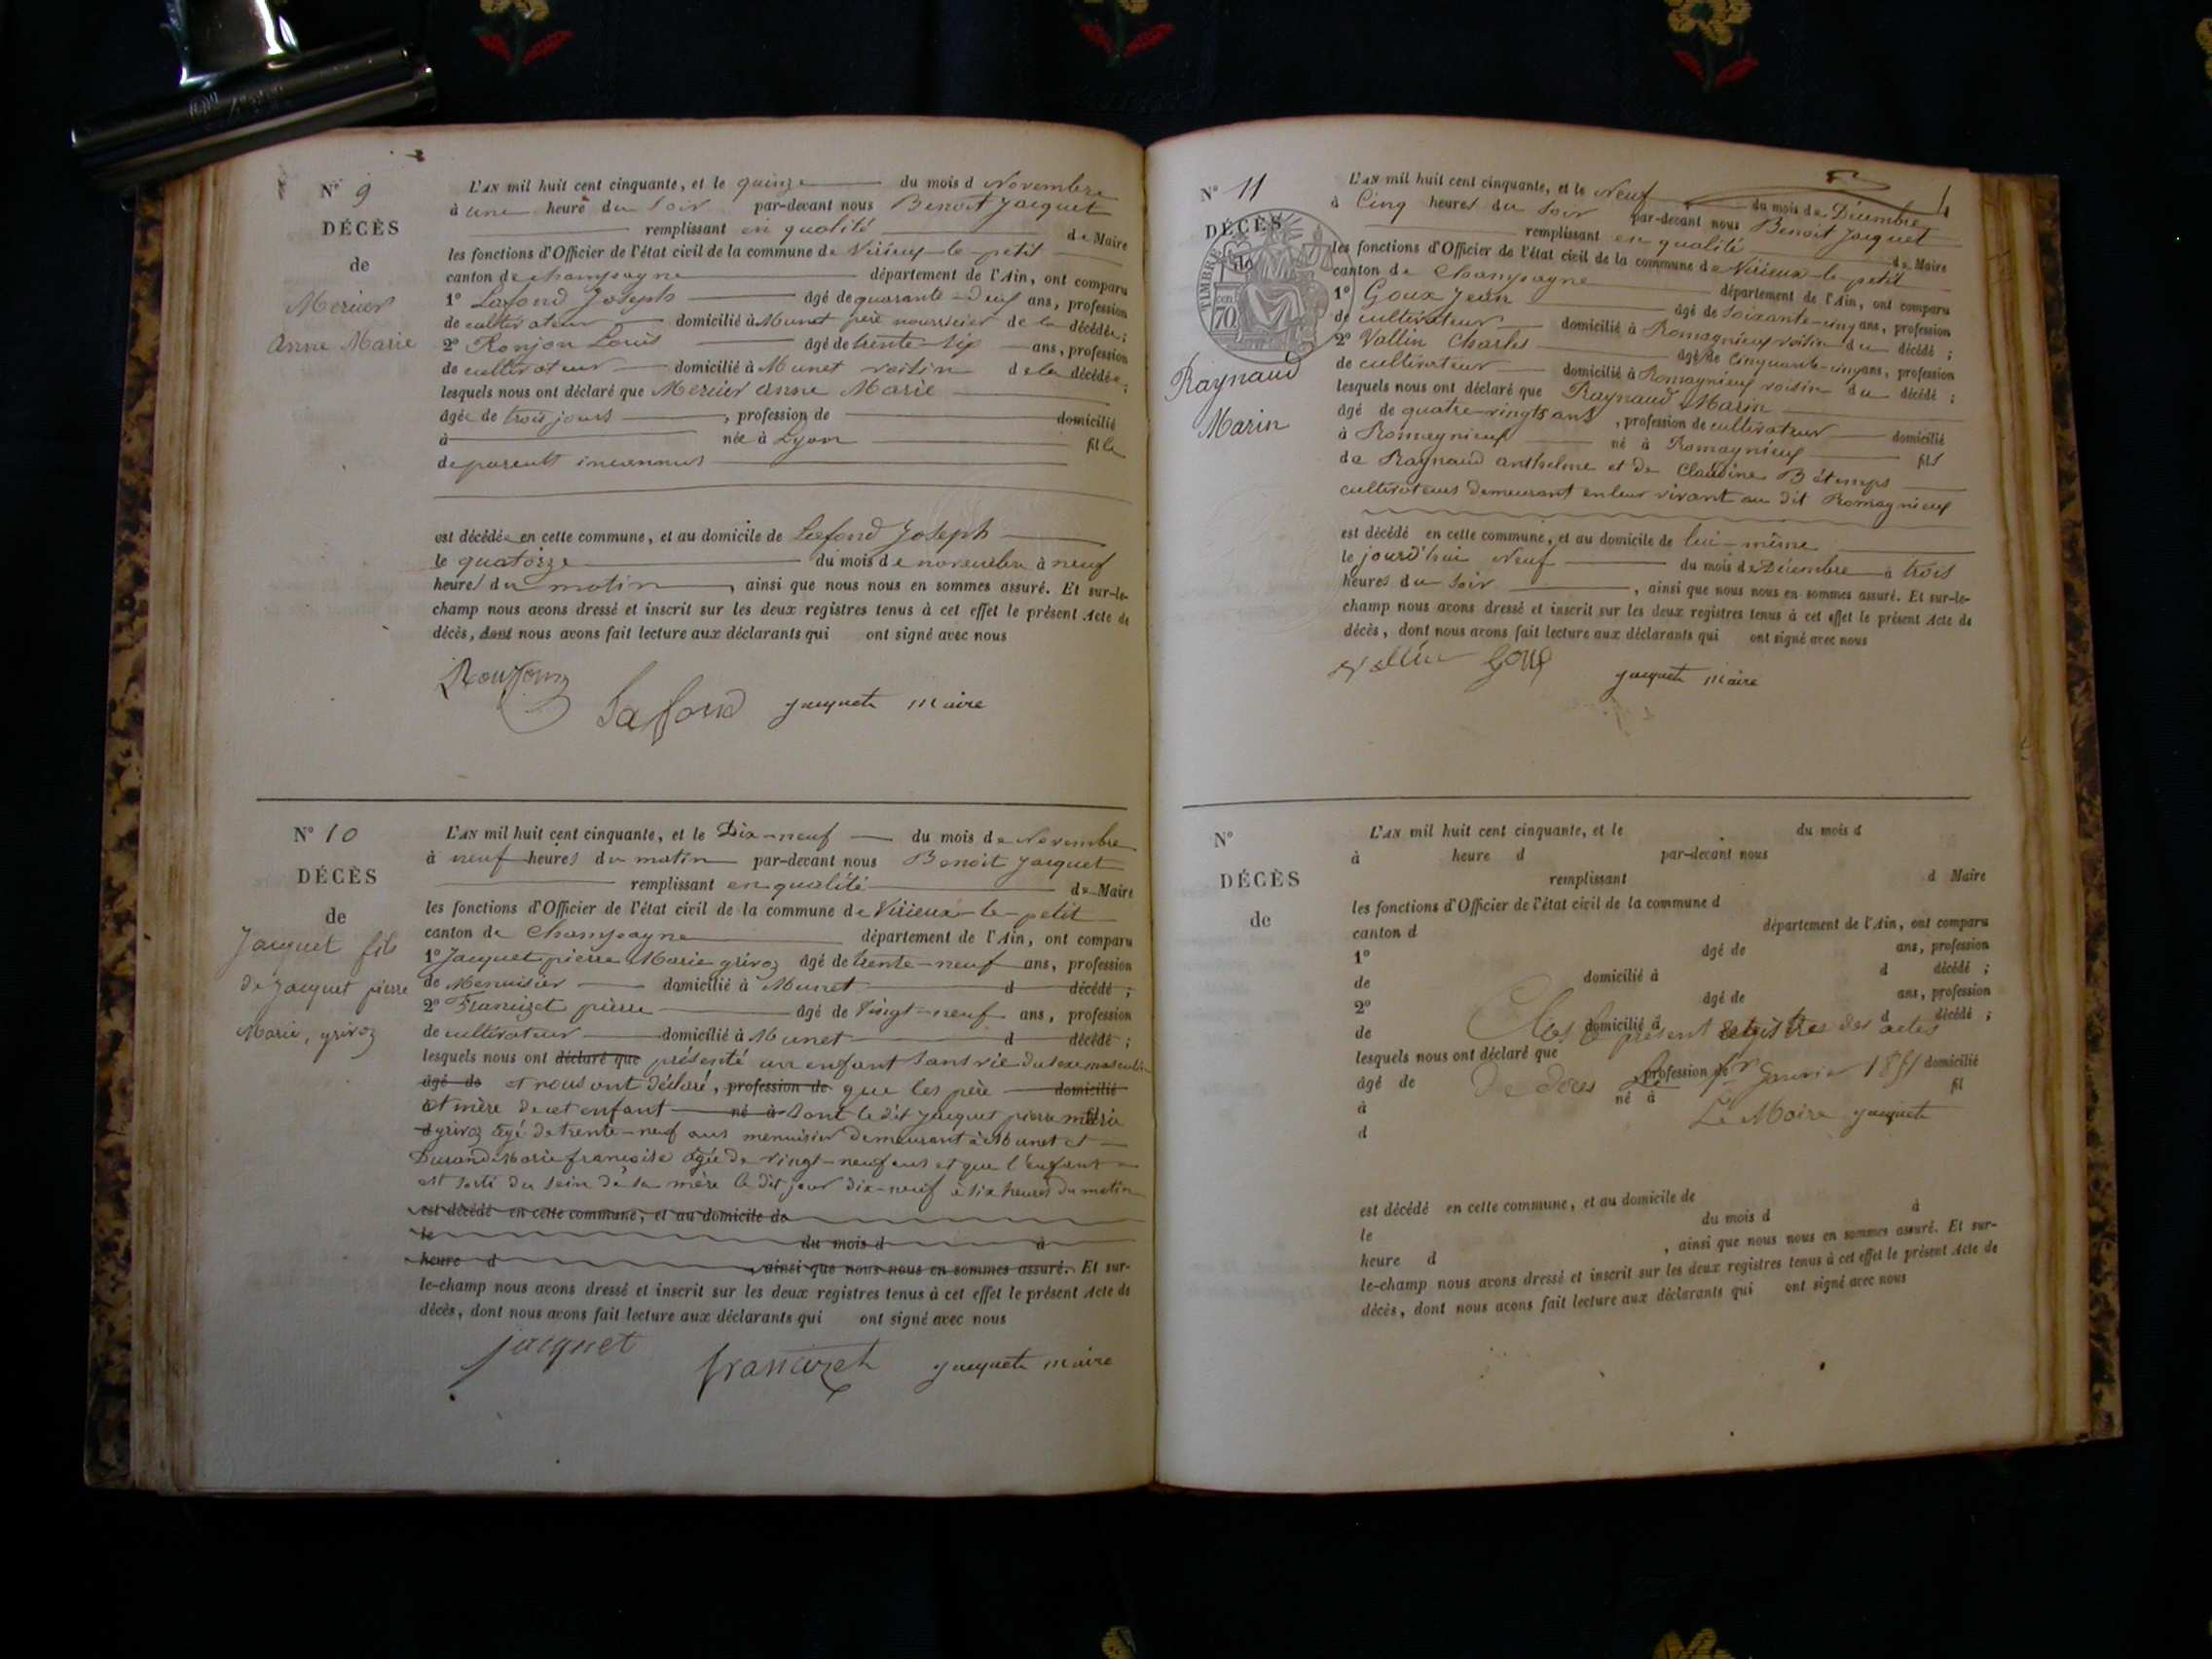 N° 9
DÉCÈS
de
Merier
Anne Marie
L'AN mil huit cent cinquante, et le quinze du mois d Novembre
à une heure du soir par-devant nous Benoit Jacquet
remplissant en qualité de Maire
les fonctions d'Officier de l'état civil de la commune de Virieux-le-petit
canton de Champagne département de l'Ain, ont comparu
1° Lafond Joseph âgé de quarante-deux ans, profession
de cultivateur domicilié à Munet père nourricier de la décédée ;
2° Ronjon Louis âgé de trente six ans, profession
de cultivateur domicilié à Munet voisin de la décédée ;
lesquels nous ont déclaré que Merier Anne Marie
âgée de trois jours , profession de domicilié
à née à Lyon fille
de parents inconnus
est décédée en cette commune, et au domicile de Lafond Joseph
le quatorze du mois de novembre à neuf
heures du matin , ainsi que nous nous en sommes assuré. Et sur-le-
champ nous avons dressé et inscrit sur les deux registres tenus à cet effet le présent Acte de
décès, dont nous avons fait lecture aux déclarants qui ont signé avec nous
Ronjon Lafond Jacquet maire
N° 10
DÉCÈS
de
Jacquet fils
de Jacquet pierre
Marie, grivoz
L'AN mil huit cent cinquante, et le Dix-neuf du mois de Novembre
à neuf heures du matin par-devant nous Benoit Jacquet
remplissant en qualité de Maire
les fonctions d'Officier de l'état civil de la commune de Virieux-le-petit
canton de Champagne département de l'Ain, ont comparu
1° Jacquet pierre Marie grivoz âgé de trente-neuf ans, profession
de Menuisier domicilié à Munet d décédé ;
2° Francizet pierre âgé de Vingt-neuf ans, profession
de cultivateur domicilié à Munet d décédé ;
lesquels nous ont déclaré que présenté un enfant sans vie du sexe masculin
âgé de et nous ont déclaré, profession de que les père domicilié
et mère de cet enfant né à sont le dit Jacquet pierre marie
d grivoz âgé de trente-neuf ans menuisier demeurant à Munet et
Durand Marie francoise âgée de vingt-neuf ans et que l'enfant
est sorti du sein de sa mère le dit jour dix-neuf à six heures du matin
est décédé en cette commune, et au domicile de
le du mois d à
heure d , ainsi que nous nous en sommes assuré. Et sur-
le-champ nous avons dressé et inscrit sur les deux registres tenus à cet effet le présent Acte de
décès, dont nous avons fait lecture aux déclarants qui ont signé avec nous
jacquet francizet Jacquet maire
N° 11
DÉCÈS
de
TIMBRE
70
Raynaud
Marin
L'AN mil huit cent cinquante, et le Neuf du mois de Décembre
à Cinq heures du soir par-devant nous Benoit Jacquet
remplissant en qualité de Maire
les fonctions d'Officier de l'état civil de la commune de Virieux-le-petit
canton de Champagne département de l'Ain, ont comparu
1° Goux Jean âgé de soixante-cinq ans, profession
de cultivateur domicilié à Romagnieux voisin du décédé ;
2° Vallin Charles âgé de cinquante-cinq ans, profession
de cultivateur domicilié à Romagnieux voisin du décédé ;
lesquels nous ont déclaré que Raynaud Marin
âgé de quatre vingts ans , profession de cultivateur domicilié
à Romagnieux né à Romagnieux fils
de Raynaud anthelme et de Claudine Bétemps
cultivateurs demeurant en leur vivant au dit Romagnieux
est décédé en cette commune, et au domicile de lui-même
le jourd'hui Neuf du mois de Décembre à trois
heures du soir , ainsi que nous nous en sommes assuré. Et sur-le-
champ nous avons dressé et inscrit sur les deux registres tenus à cet effet le présent Acte de
décès, dont nous avons fait lecture aux déclarants qui ont signé avec nous
Vallin Goux Jacquet maire
N°
DÉCÈS
de
L'AN mil huit cent cinquante, et le du mois d
à heure d par-devant nous
remplissant d Maire
les fonctions d'Officier de l'état civil de la commune d
canton d département de l'Ain, ont comparu
1° âgé de ans, profession
de domicilié à d décédé ;
2° âgé de ans, profession
de domicilié à d décédé ;
Clos le présent registre des actes
lesquels nous ont déclaré que
âgé de , profession de domicilié
de décès Le 1er Janvier 1851
à né à fil
d
Le Maire Jacquet
est décédé en cette commune, et au domicile de
le du mois d à
heure d , ainsi que nous nous en sommes assuré. Et sur-
le-champ nous avons dressé et inscrit sur les deux registres tenus à cet effet le présent Acte de
décès, dont nous avons fait lecture aux déclarants qui ont signé avec nous